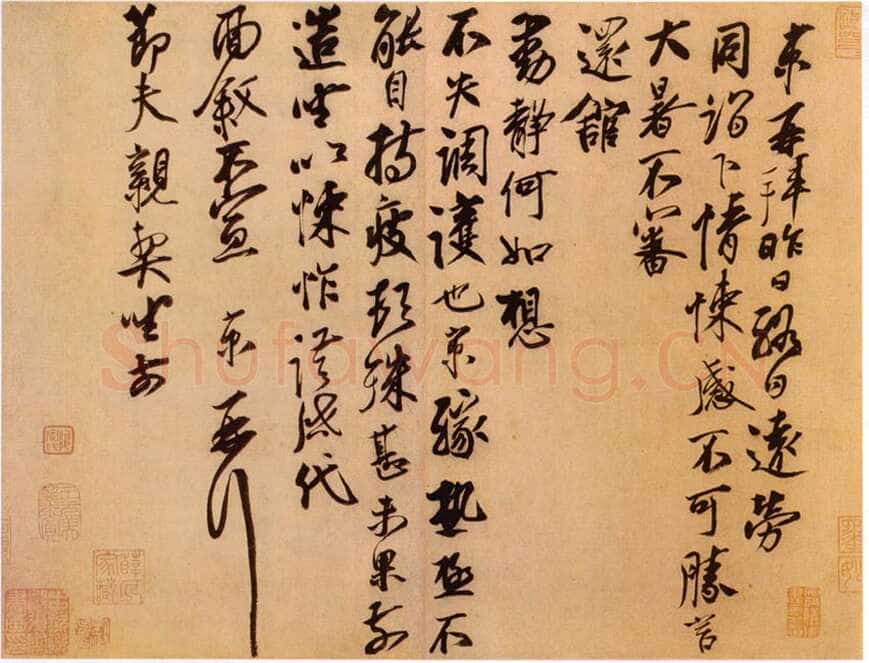 京再拜昨日終日遠勞
同詣下情悚感不可勝言
大暑不審
還館
動靜何如想
不失調護也京緣熱極不
能自持疲頓殊甚未果前
造坐次悚怍謹啓代
面敘不宣 京再拜
節夫親契坐前
ShufaWang.CN